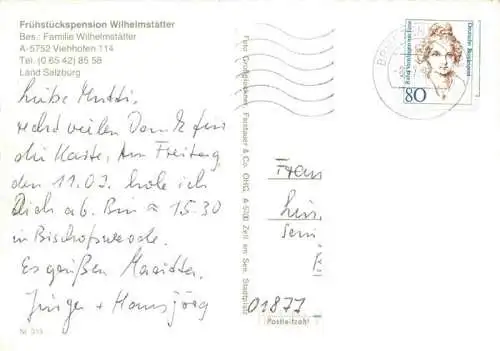 Frühstückspension Wilhelmstätter
Bes.: Familie Wilhelmstätter
A-5752 Viehhofen 114
Tel. (0 65 42) 85 58
Land Salzburg
Liebe Mutti,
recht vielen Dank für
die Karte. Am Freitag,
den 11.03. hole ich
Dich ab. Bin ≈ 15.30
in Bischofswerda.
Es grüßen
Jürgen + Hannsjörg
Nr. 313
Foto Großglockner, Fastauer & Co. OHG, A-5700 Zell am See, Stadtplatz
Deutsche Bundespost
80
Frau
01877
Postleitzahl